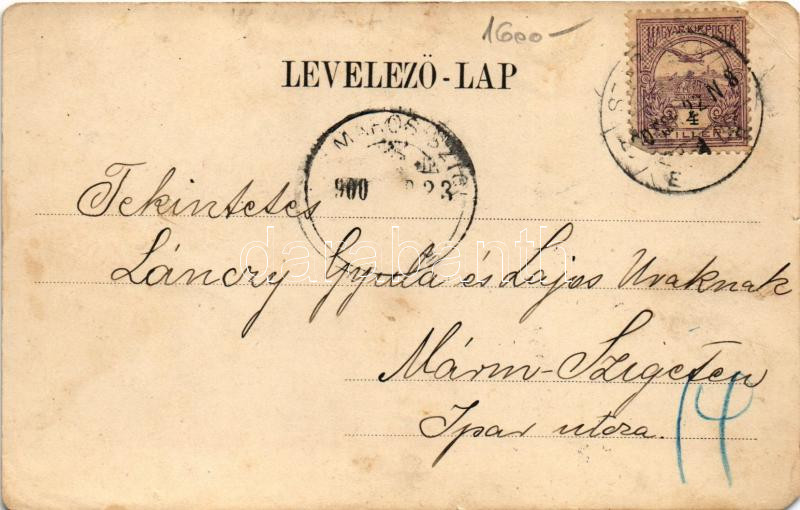 1600-
LEVELEZŐ-LAP
MAGYAR KIR. POSTA
4
FILLÉR
900 23
Tekintetes
Lánczy Gyula és Lajos Uraknak
Márm-Szigeten
Ipar utcza.
14
darabanth